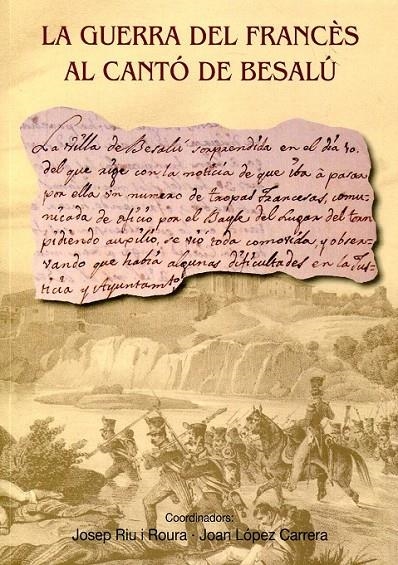 LA GUERRA DEL FRANCÈS
AL CANTÓ DE BESALÚ
La villa de Besalú sorprendida en el día 10.
del que rige con la noticia de que iba à pasar
por ella un numero de tropas Francesas, comu-
nicada de oficio por el Bayle del Lugar del torn
pidiendo aupilio, se vió toda comovida y obser-
vando que havia algunas dificultades en la Jus-
ticia y Ayuntamto
Coordinadors:
Josep Riu i Roura · Joan López Carrera